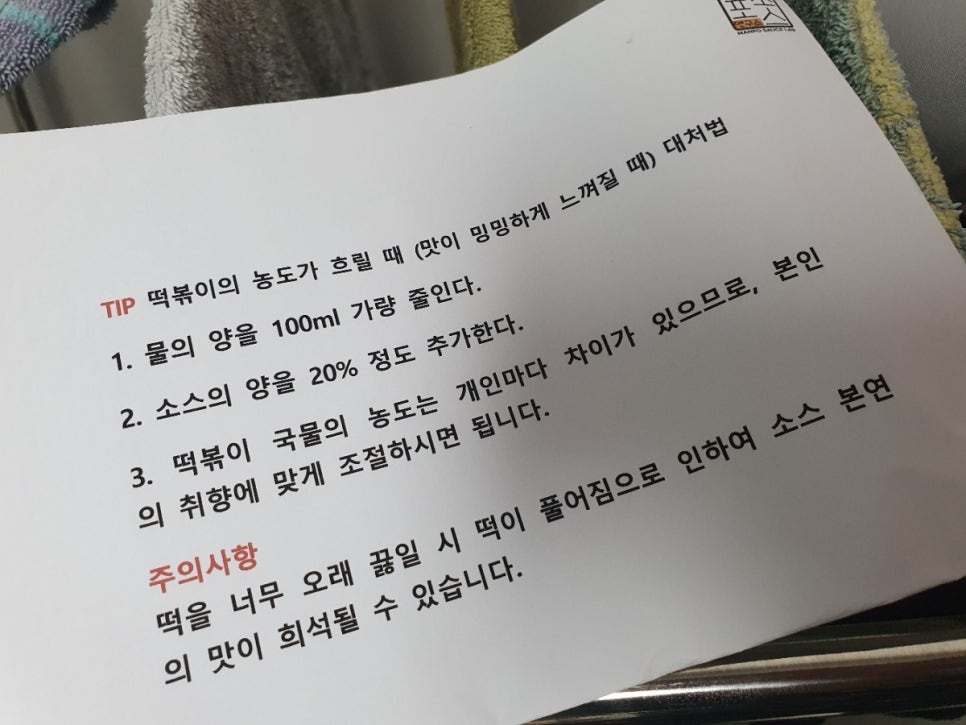 연구소
MANPU SAUCE LAB
TIP 떡볶이의 농도가 흐릴 때 (맛이 밍밍하게 느껴질 때) 대처법
1. 물의 양을 100ml 가량 줄인다.
2. 소스의 양을 20% 정도 추가한다.
3. 떡볶이 국물의 농도는 개인마다 차이가 있으므로, 본인
의 취향에 맞게 조절하시면 됩니다.
주의사항
떡을 너무 오래 끓일 시 떡이 풀어짐으로 인하여 소스 본연
의 맛이 희석될 수 있습니다.